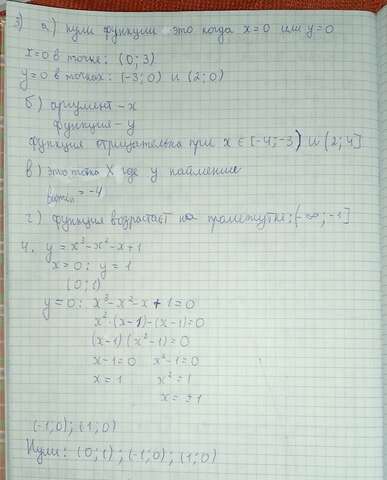 3) а.) нули функции это когда x=0 или y=0
x=0 в точке: (0; 3)
y=0 в точках: (-3; 0) и (2; 0)
б) аргумент - x
функция - y
функция отрицательна при x ∈ [-4; -3) и (2; 4]
в) это точка X где y наименьшее
= -4
г) функция возрастает на промежутке: (-∞; -1]
4. y = x³-x²-x+1
x=0: y=1
(0; 1)
y=0: x³-x²-x+1=0
x²·(x-1)-(x-1)=0
(x-1)(x²-1)=0
x-1=0 x²-1=0
x=1 x²=1
x=±1
(-1;0); (1;0)
Нули: (0;1); (-1;0); (1;0)